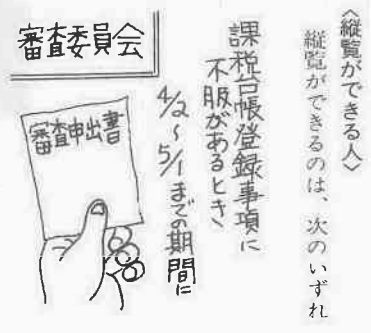 〈縦覧ができる人〉
縦覧ができるのは、次のいずれ
課税台帳登録事項に
不服があるとき、
4/2～5/1までの期間に
審査委員会
審査申出書